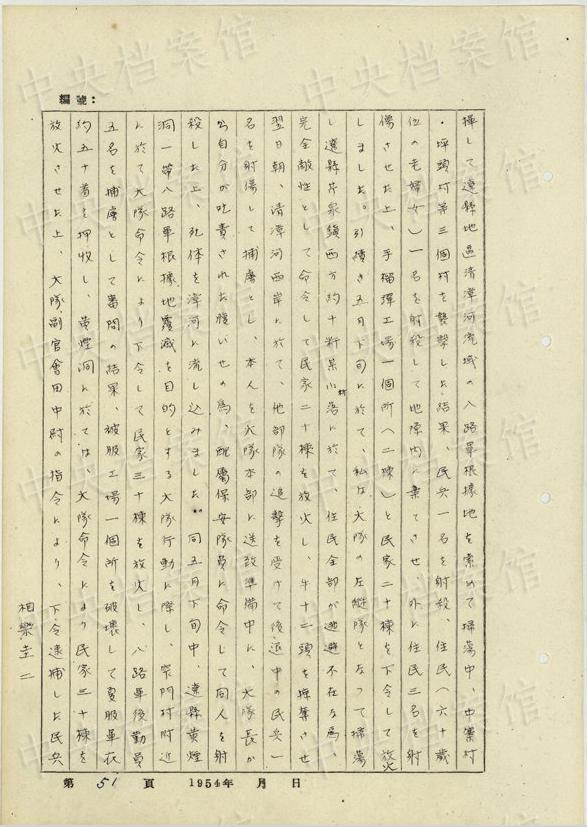 編號：
揮して遼縣地區清漳河流域の八路軍根據地を索めて掃蕩中、中寨村
・坪頭村第三個村を襲撃した結果、民兵一名を射殺、住民（六十歲
位の老婦女）一名を射殺して地隙内に棄てさせ 外に住民三名を射
傷させた上、手榴彈工場一個所（二棟）と民家二十棟を下令して放火
しました。引續き五月下旬に於て、私は大隊の左縱隊となって掃蕩
し遼縣芹泉鎮西方約十粁某小村落に於て、住民全部が逃避不在な為、
完全敵性として命令して民家二十棟を放火し、牛十二頭を掠奪させ
翌日朝、清漳河西岸に於て、他部隊の追撃を受けて後退中の民兵一
名を射傷して捕虜とし、本人を大隊本部に送致準備中に、大隊長か
ら自分が叱責された腹いせの為、配屬保安隊員に命令して同人を射
殺した上、死体を漳河に流し込みました。同五月下旬中、遼縣黄煙
洞一帶八路軍根據地覆滅を目的とする大隊行動に際し、宋門村附近
に於て大隊命令により下令して民家三十棟を放火し、八路軍後勤員
五名を捕虜として審問の結果、被服工場一個所を破壊して夏服單衣
約五十着を押收し、黄煙洞に於ては、大隊命令により民家三十棟を
放火させた上、大隊副官會田中尉の指令により、下令逮捕した民兵
相樂圭二
第 51 頁 1954年 月 日
中央档案馆